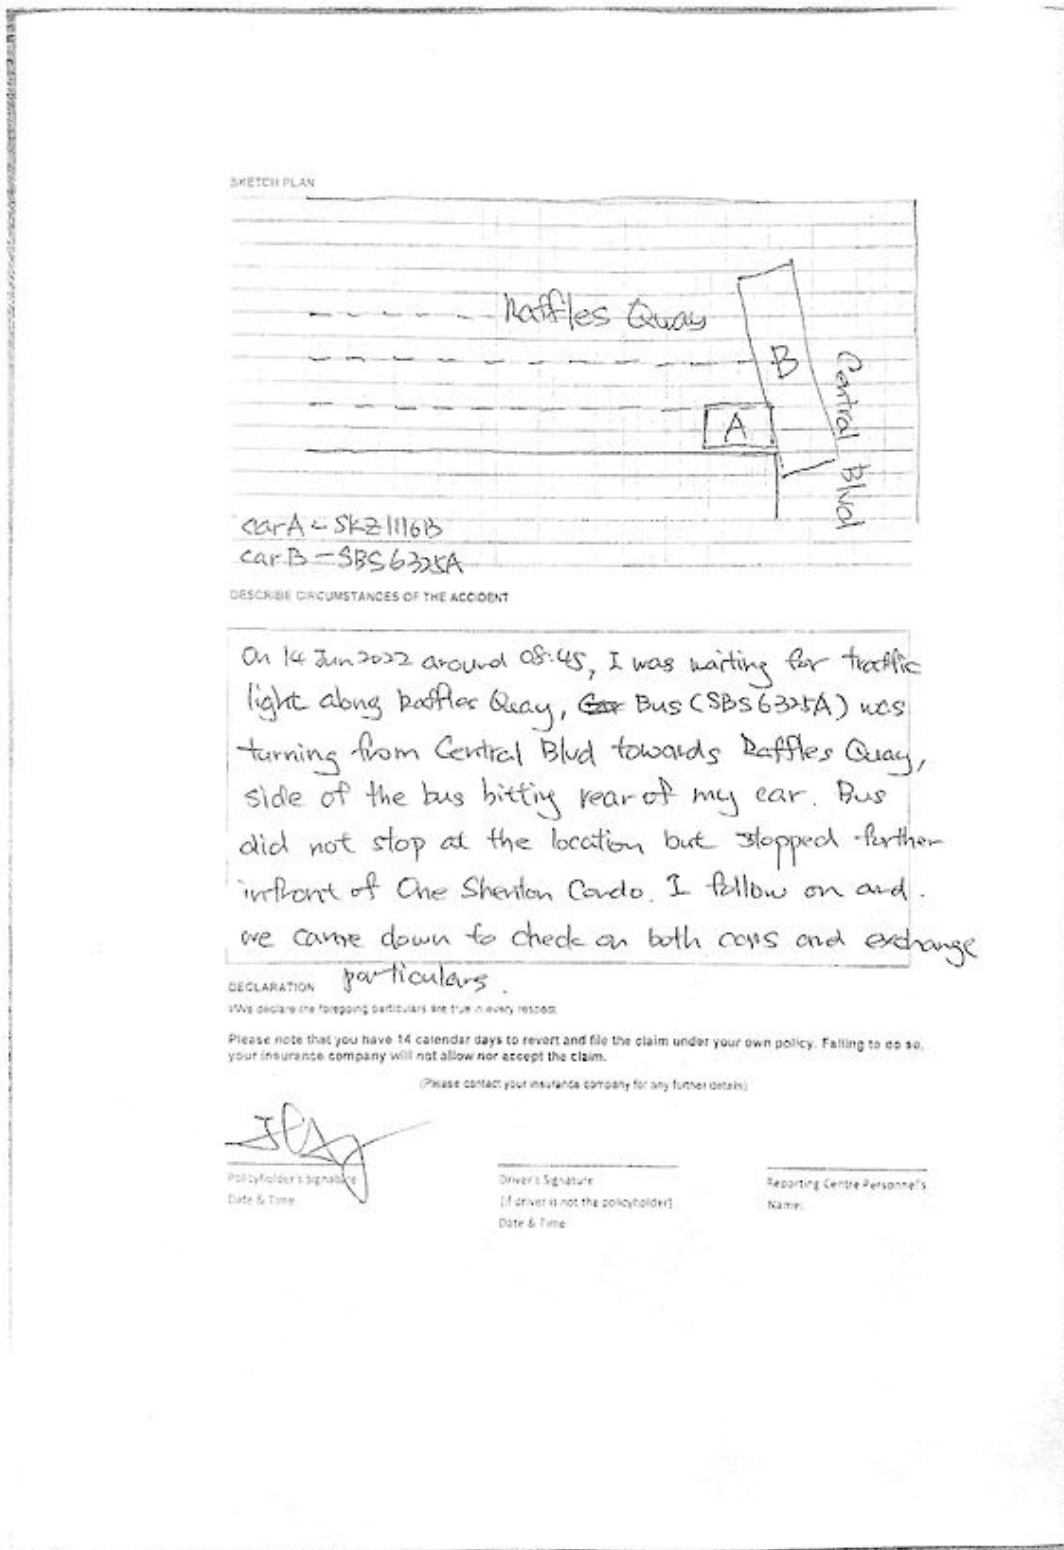 SKETCH PLAN
Raffles Quay
B
A
Central Blvd
car A - SKZ1116B
car B - SBS6325A
DESCRIBE CIRCUMSTANCES OF THE ACCIDENT
On 14 Jun 2022 around 08:45, I was waiting for traffic
light along Raffles Quay, Bus (SBS6325A) was
turning from Central Blvd towards Raffles Quay,
side of the bus hitting rear of my car. Bus
did not stop at the location but stopped further
infront of One Shenton Condo. I follow on and.
we came down to check on both cars and exchange
particulars.
DECLARATION
I/We declare the foregoing particulars are true in every respect
Please note that you have 14 calendar days to revert and file the claim under your own policy. Failing to do so,
your insurance company will not allow nor accept the claim.
(Please contact your insurance company for any further details)
Policyholder's Signature
Date & Time
Driver's Signature
(If driver is not the policyholder)
Date & Time
Reporting Centre Personnel's
Name: